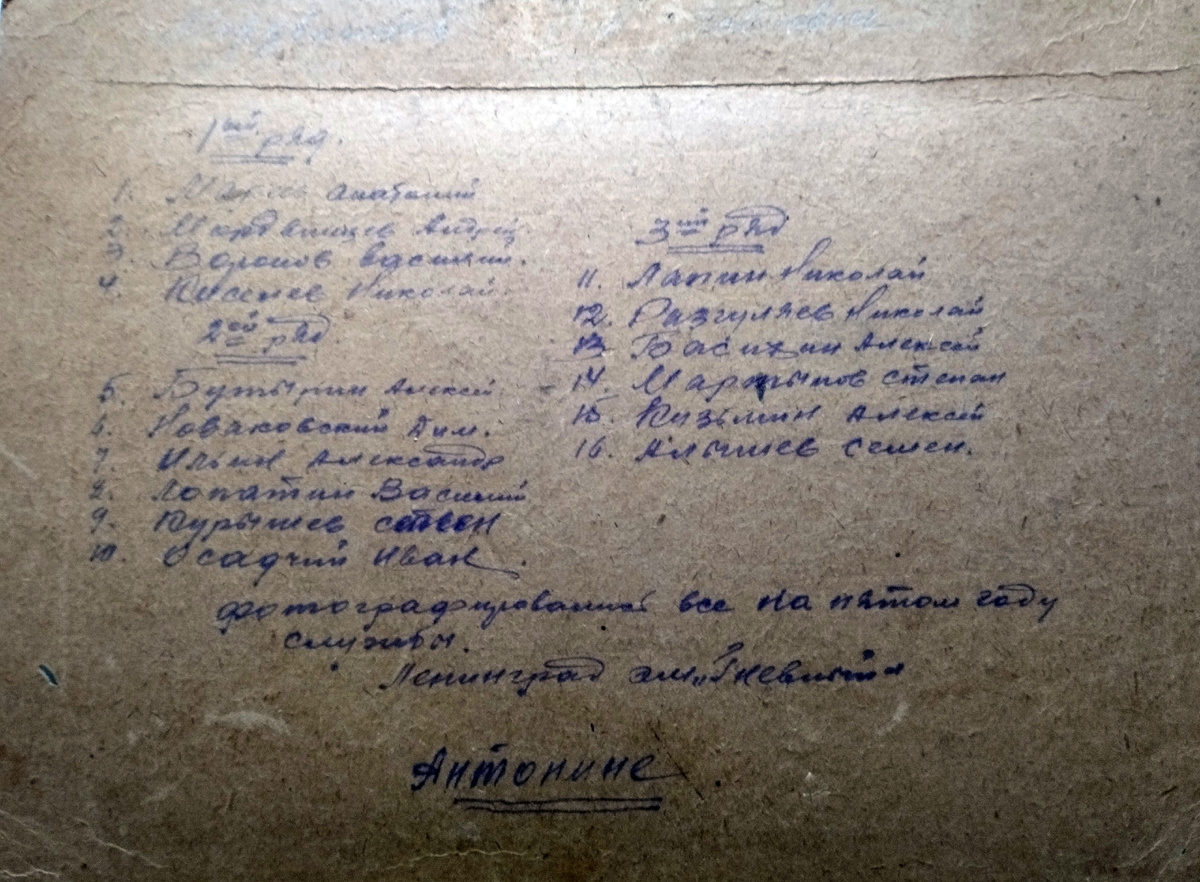 1ый ряд.
1. Анатолий
2. Мордвинцев Андрей
3. Воронов Василий.
4. Киселев Николай.
2ой ряд
5. Бутырин Алексей
6. Новаковский Дим.
7. Ильин Александр
8. Лопатин Василий
9. Курышев
10. Осадчий Иван
3ий ряд
11. Лапин Николай
12. Разгуляев Николай
13. Алексей
14. Мартынов Степан
15. Кузьмин Алексей
16. Алышев Семен.
фотографировались все на пятом году
службы.
Ленинград эм „Гневный“
Антонине